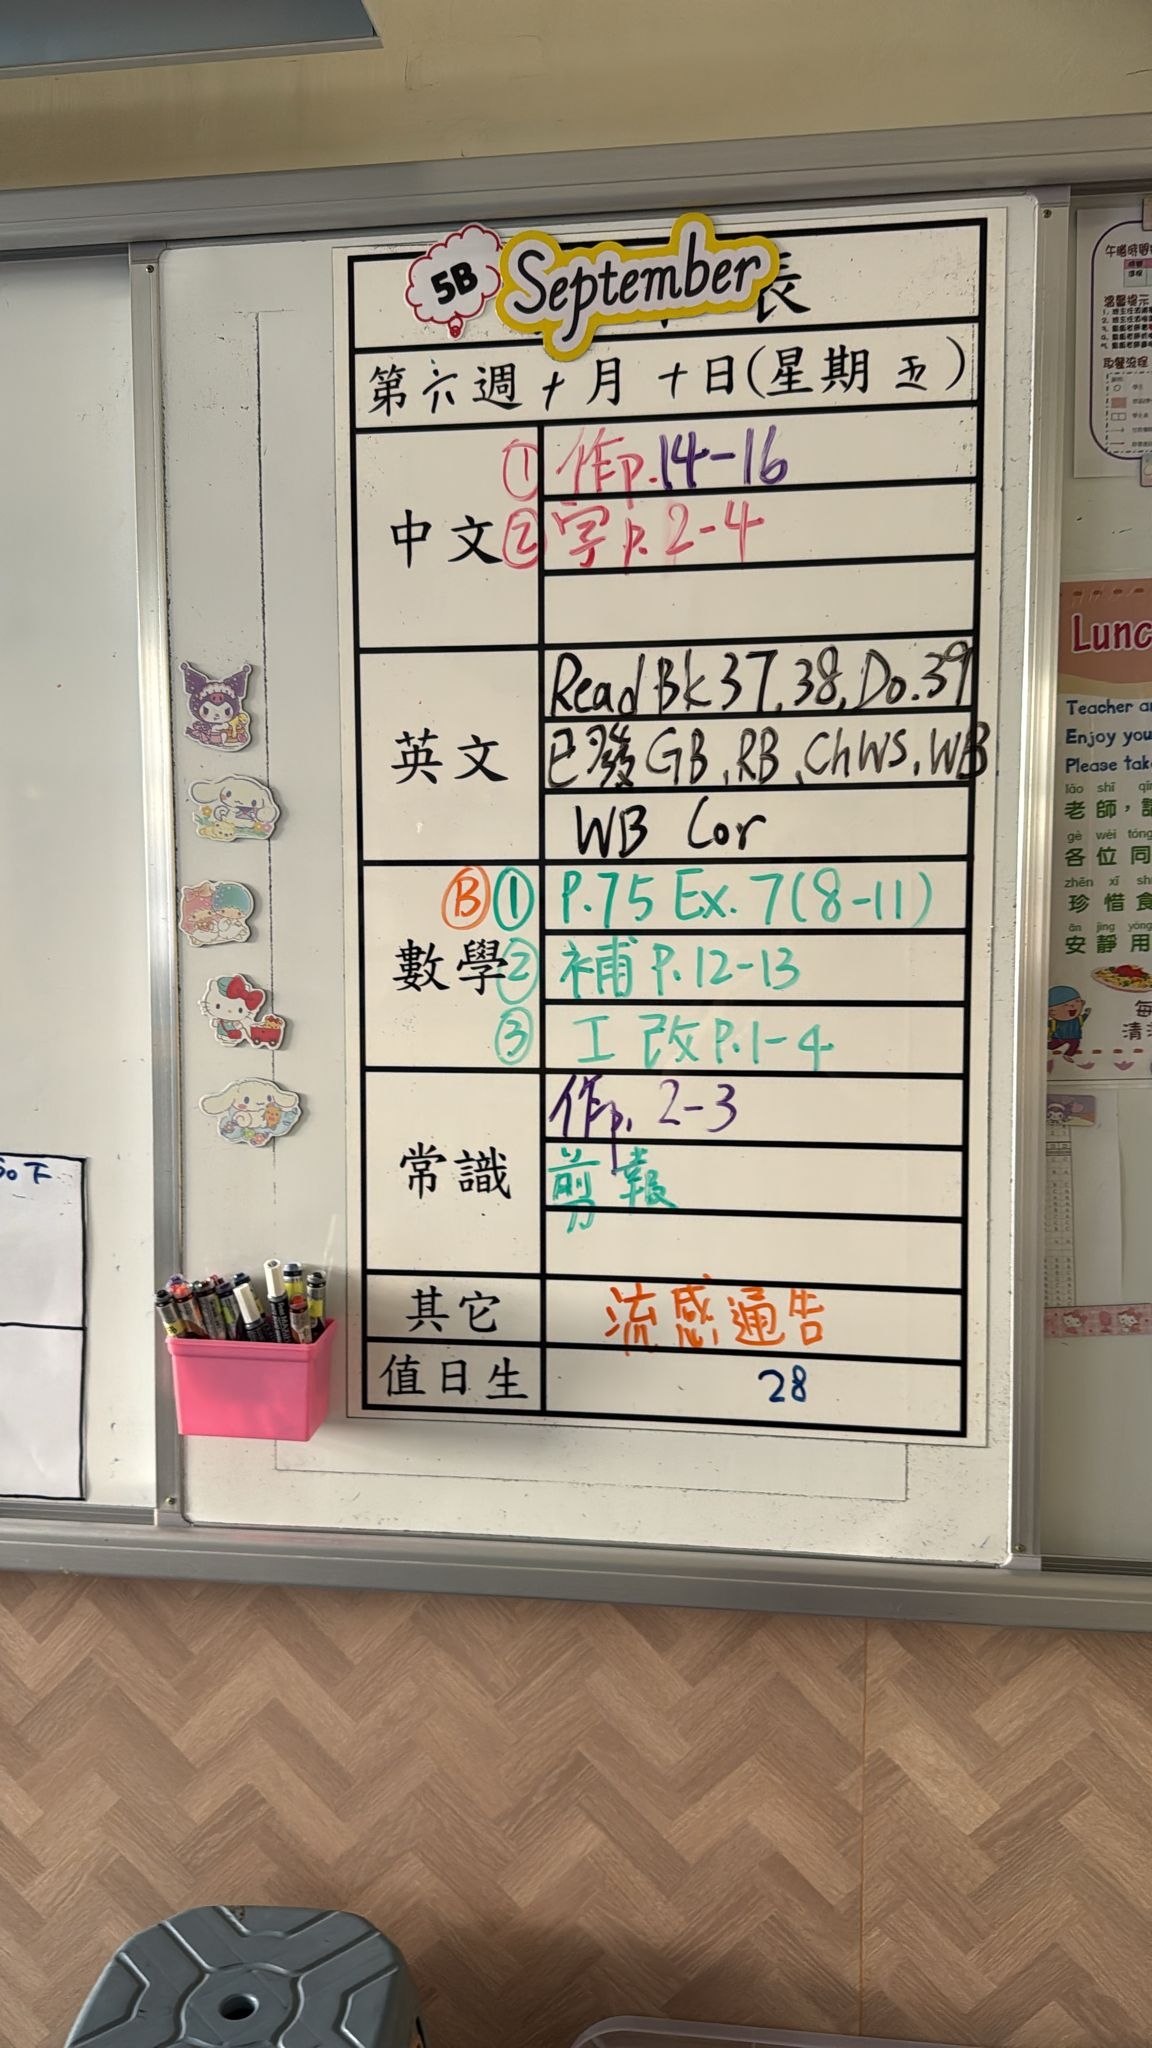 5B
September
表
第六週十月十日(星期五)
中文
① 作p.14-16
② 字p.2-4
英文
Read Bk 37,38, Do.39
已發GB、RB、ChWS、WB
WB Cor
數學
Ⓑ① P.75 Ex.7(8-11)
② 補P.12-13
③ 工改P.1-4
常識
作p.2-3
剪報
其它
流感通告
值日生
28
So下
午膳時間
溫馨提示
取餐流程
Lunc
Teacher a
Enjoy you
Please tak
lǎo shī
老師，請
gè wèi tóng
各位同
zhēn xī sh
珍惜食
ān jìng yòng
安靜用
每
清